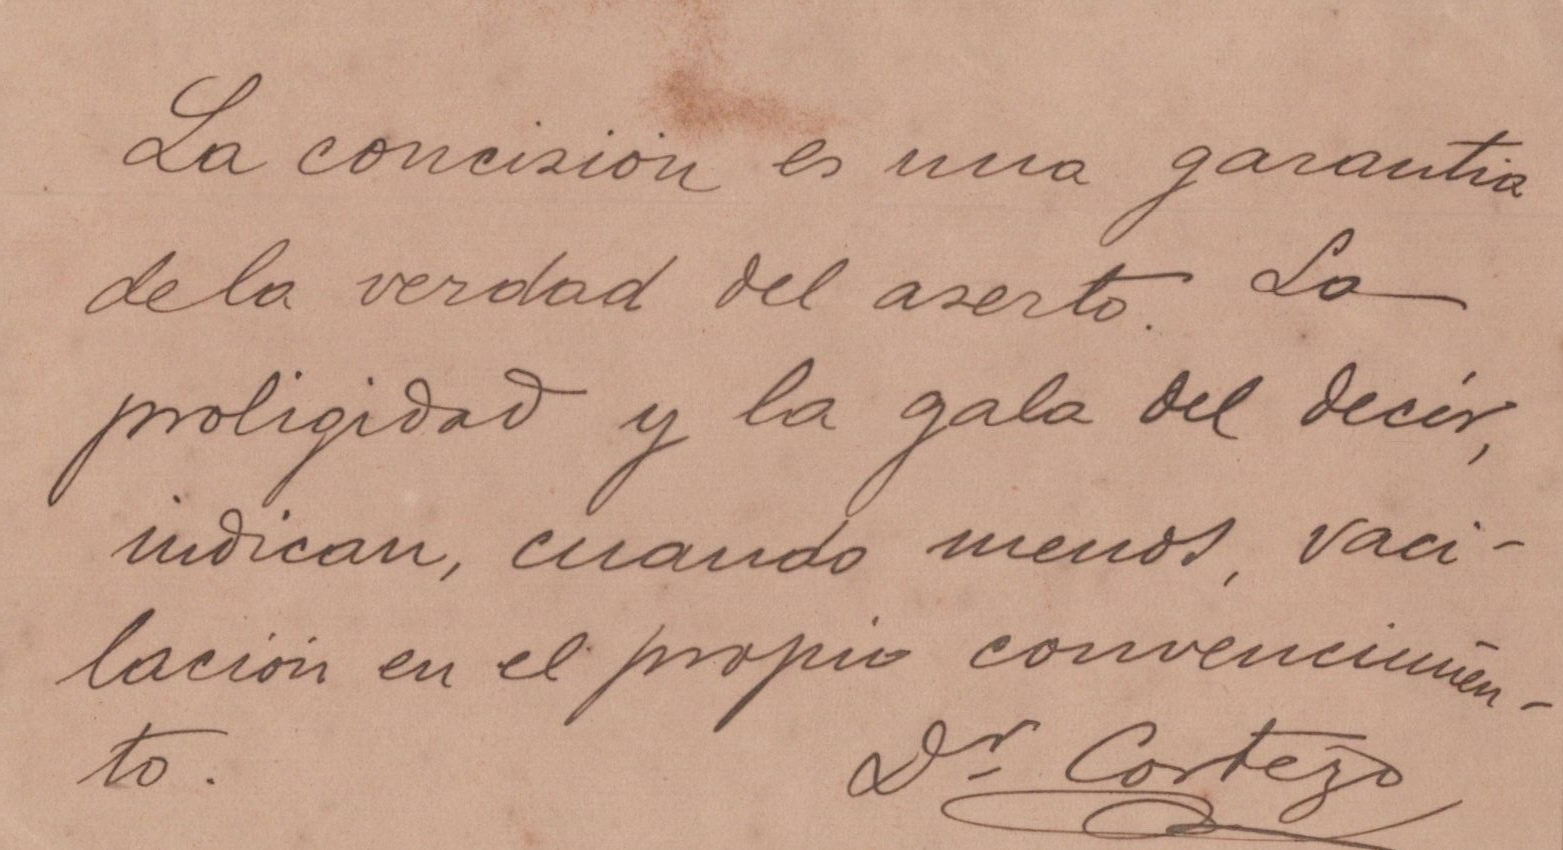 La concisión es una garantia
de la verdad del aserto. La
proligidad y la gala del decir,
indican, cuando menos, vaci-
lación en el propio convencimien-
to.
Dr. Cortezo